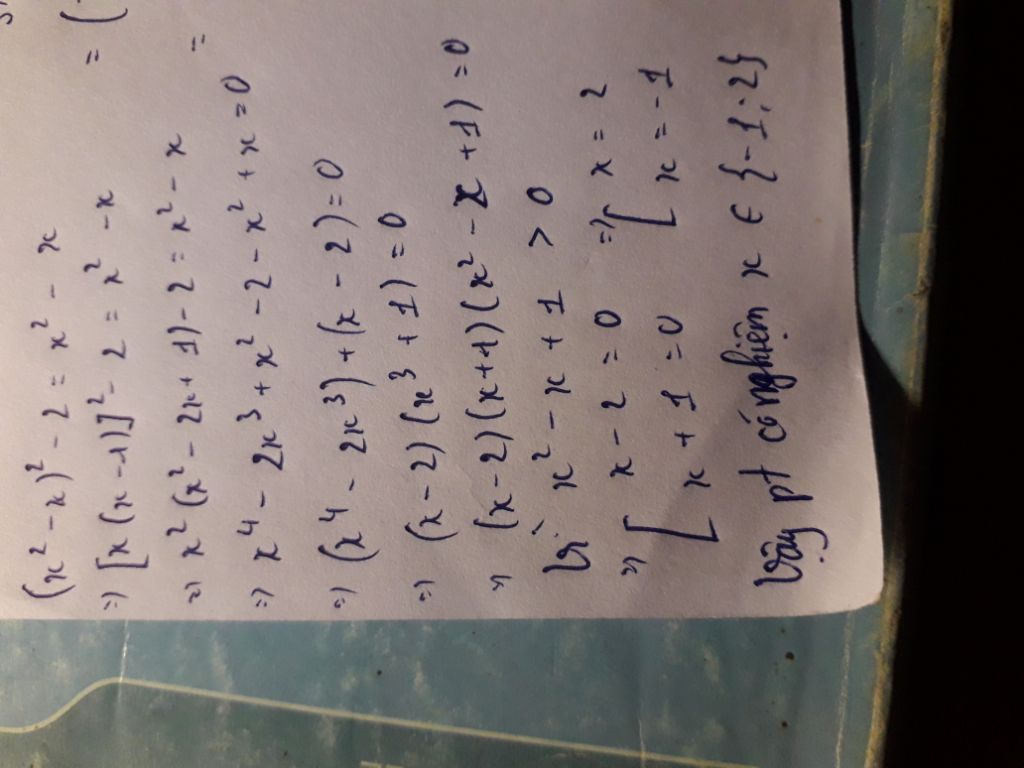 (x² - x)² - 2 = x² - x
=> [x(x - 1)]² - 2 = x² - x
=> x²(x² - 2x + 1) - 2 = x² - x
=> x⁴ - 2x³ + x² - 2 - x² + x = 0
=> (x⁴ - 2x³) + (x - 2) = 0
=> (x - 2)(x³ + 1) = 0
=> (x - 2)(x + 1)(x² - x + 1) = 0
Vì x² - x + 1 > 0
=> [ x - 2 = 0 => [ x = 2
x + 1 = 0 x = -1
Vậy pt có nghiệm x ∈ {-1; 2}